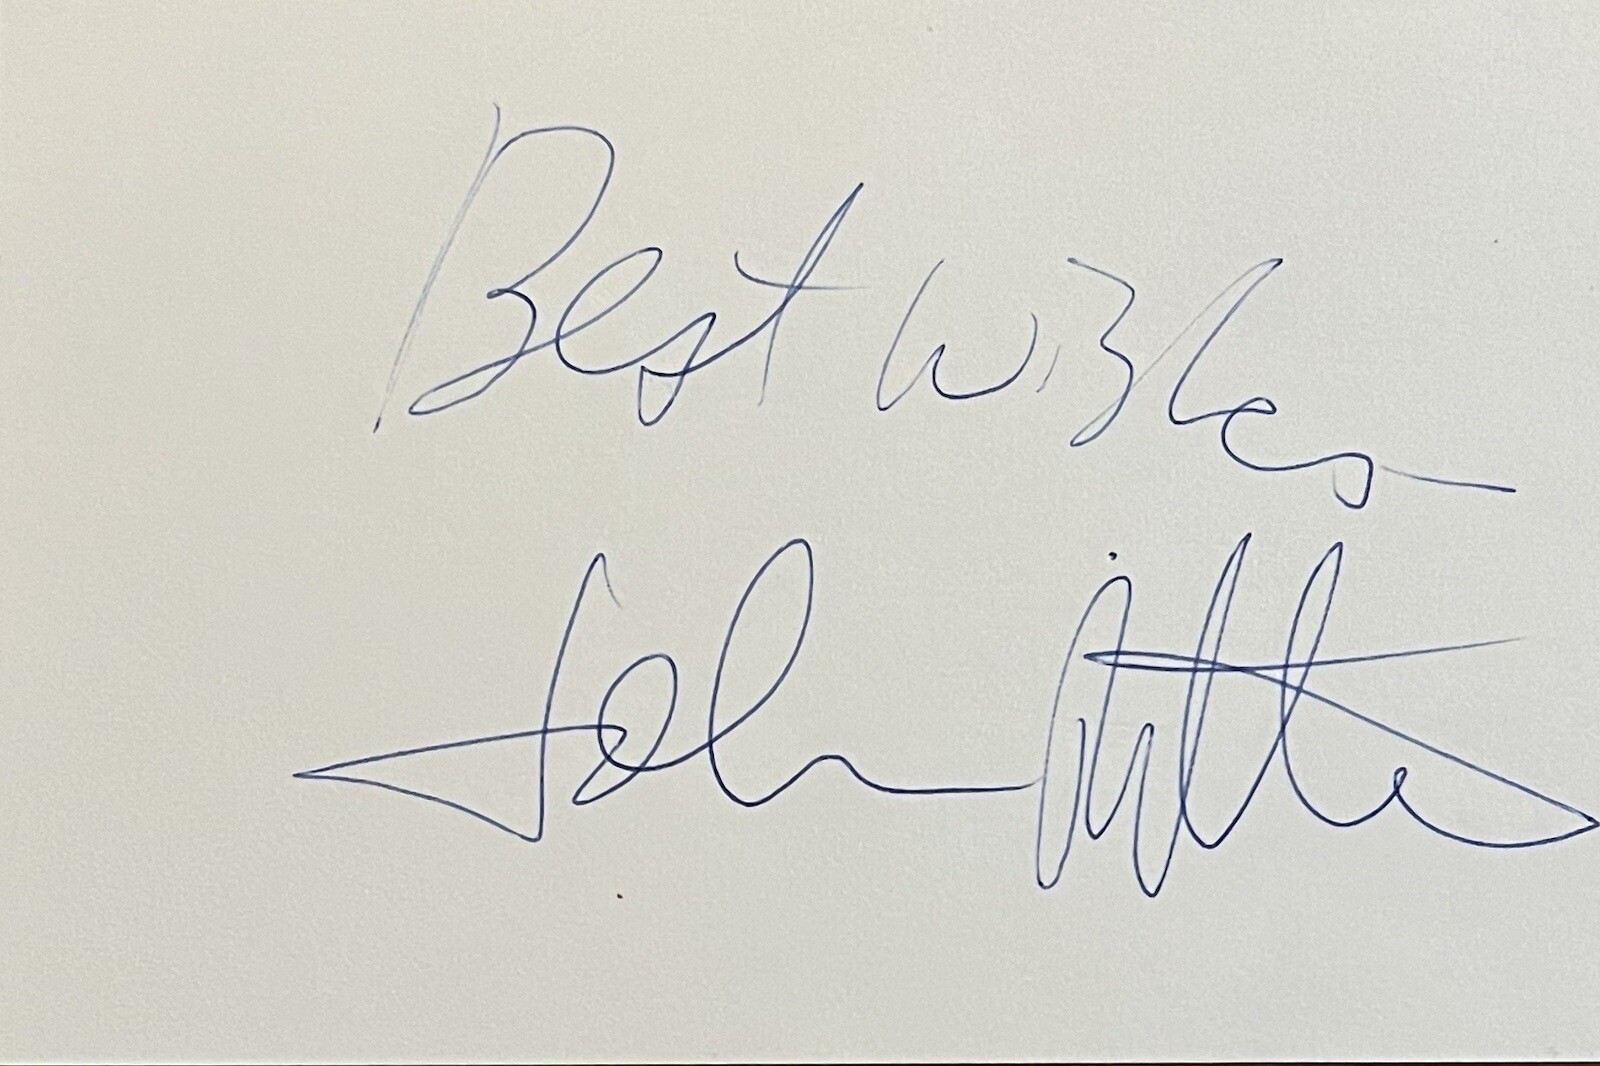 Best Wishes
John